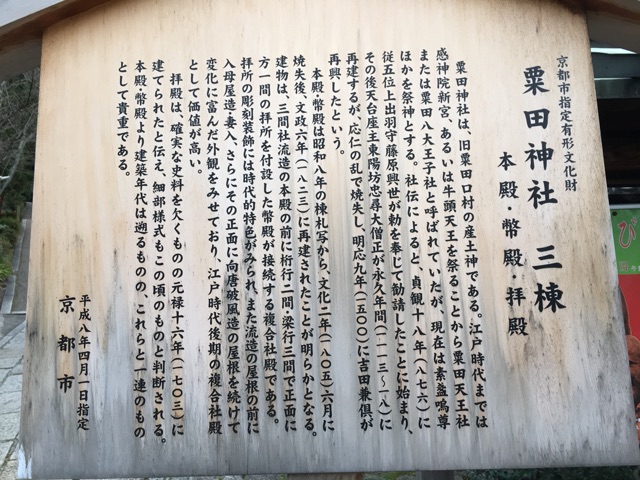 京都市指定有形文化財
粟田神社 三棟
本殿・幣殿・拝殿
粟田神社は、旧粟田口村の産土神である。江戸時代までは
感神院新宮、あるいは牛頭天王を祭ることから粟田天王社
または粟田八大王子社と呼ばれていたが、現在は素盞嗚尊
ほかを祭神とする。社伝によると、貞観十八年(八七六)に
従五位上出羽守藤原興世が勅を奉じて勧請したことに始まり、
その後天台座主東陽坊忠尋大僧正が永久年間(一一一三〜一八)に
再建するが、応仁の乱で焼失し、明応九年(一五〇〇)に吉田兼倶が
再興したという。
本殿・幣殿は昭和八年の棟札写から、文化二年(一八〇五)六月に
焼失後、文政六年(一八二三)に再建されたことが明らかとなる。
建物は、三間社流造の本殿の前に桁行二間、梁行三間で正面に
方一間の拝所を付設した幣殿が接続する複合社殿である。
拝所の彫刻装飾には時代的特色がみられ、また流造の屋根の前に
入母屋造・妻入、さらにその正面に向唐破風造の屋根を続けて
変化に富んだ外観をみせており、江戸時代後期の複合社殿
として価値が高い。
拝殿は、確実な史料を欠くものの元禄十六年(一七〇三)に
建てられたと伝え、細部様式もこの頃のものと判断される。
本殿・幣殿より建築年代は遡るものの、これらと一連のもの
として貴重である。
平成八年四月一日指定
京都市
ひ